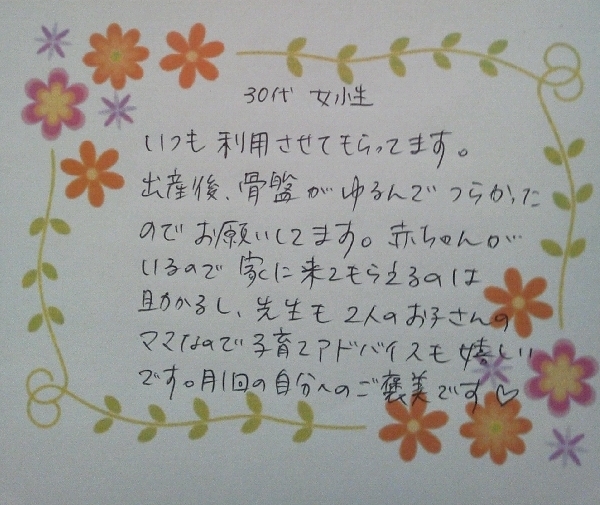 30代 女性
いつも利用させてもらってます。
出産後、骨盤がゆるんでつらかった
のでお願いしてます。赤ちゃんが
いるので家に来てもらえるのは
助かるし、先生も2人のお子さんの
ママなので子育てアドバイスも嬉しい
です。月1回の自分へのご褒美です♡